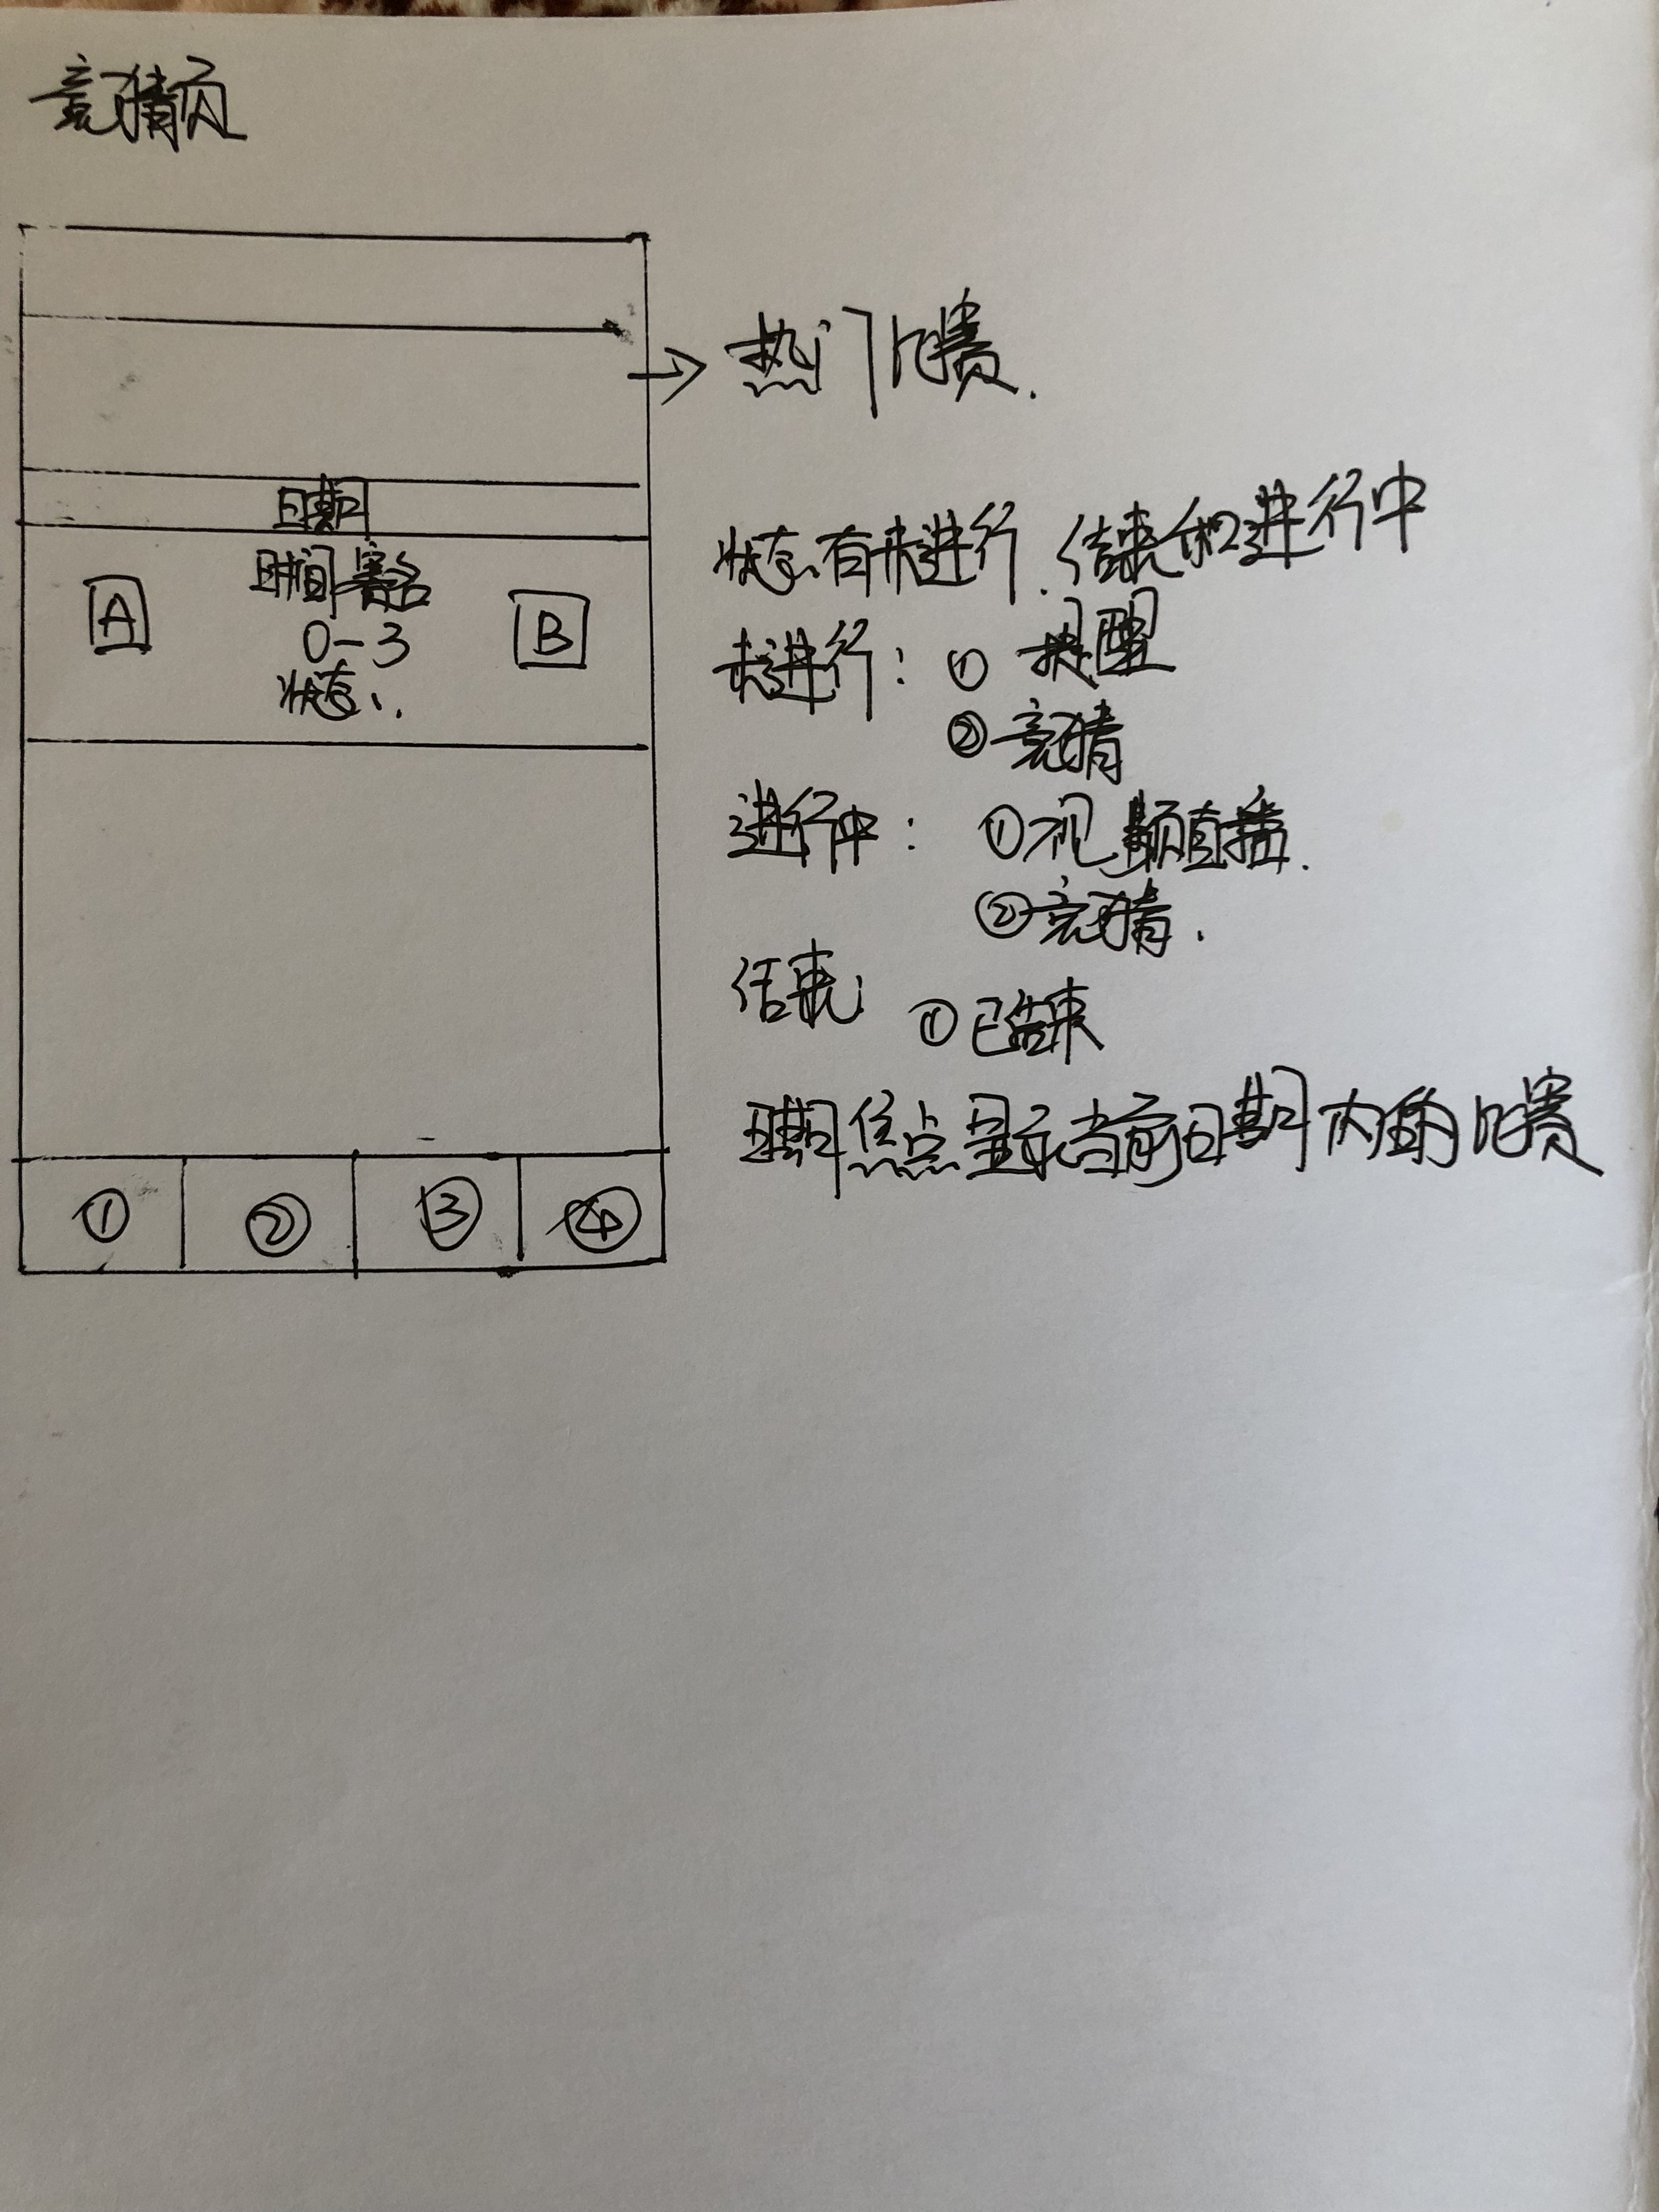 竞猜页
热门比赛.
日期
时间 赛名
A
0-3
B
状态
状态有未进行、结束和进行中
未进行: ① 提醒
② 竞猜
进行中: ① 视频直播.
② 竞猜.
结束: ① 已结束
日期焦点显示当前日期内的比赛
① ② ③ ④